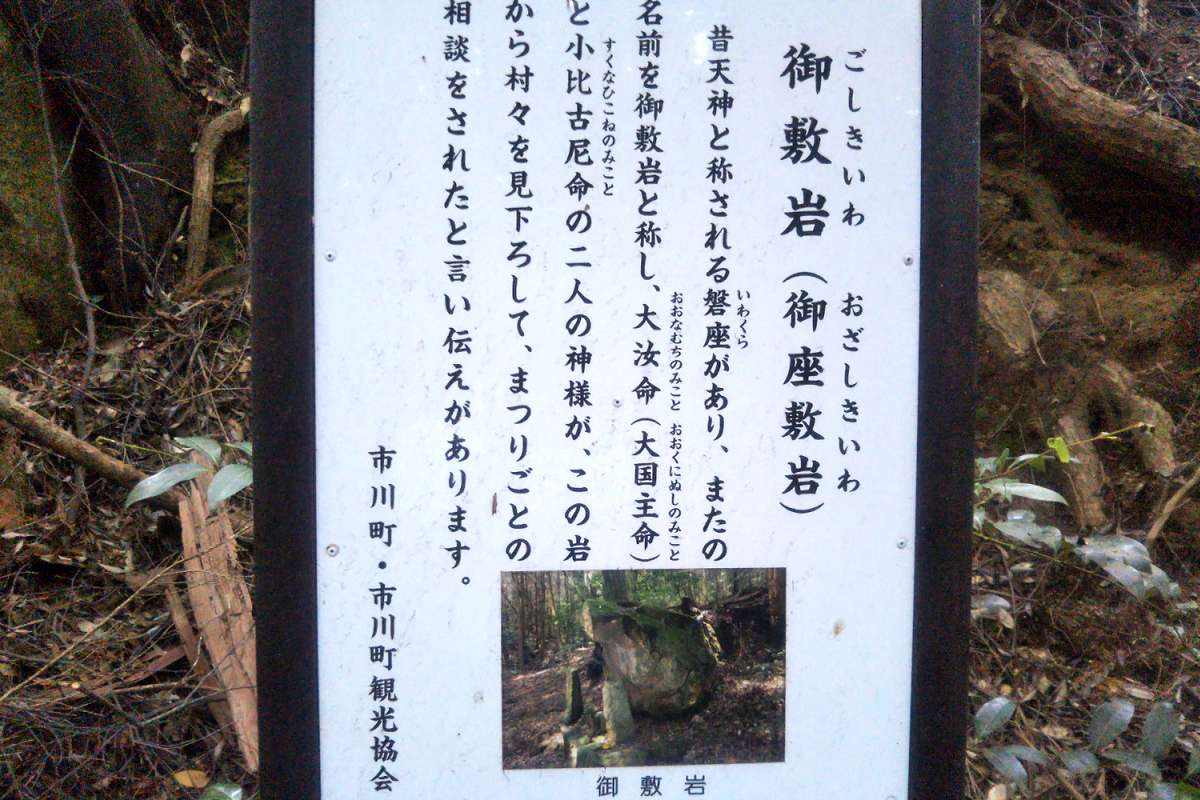 ごしきいわ おざしきいわ
御敷岩(御座敷岩)
いわくら
昔天神と称される磐座があり、またの
おおなむちのみこと おおくにぬしのみこと
名前を御敷岩と称し、大汝命(大国主命)
すくなひこねのみこと
と小比古尼命の二人の神様が、この岩
から村々を見下ろして、まつりごとの
相談をされたと言い伝えがあります。
市川町・市川町観光協会
御敷岩